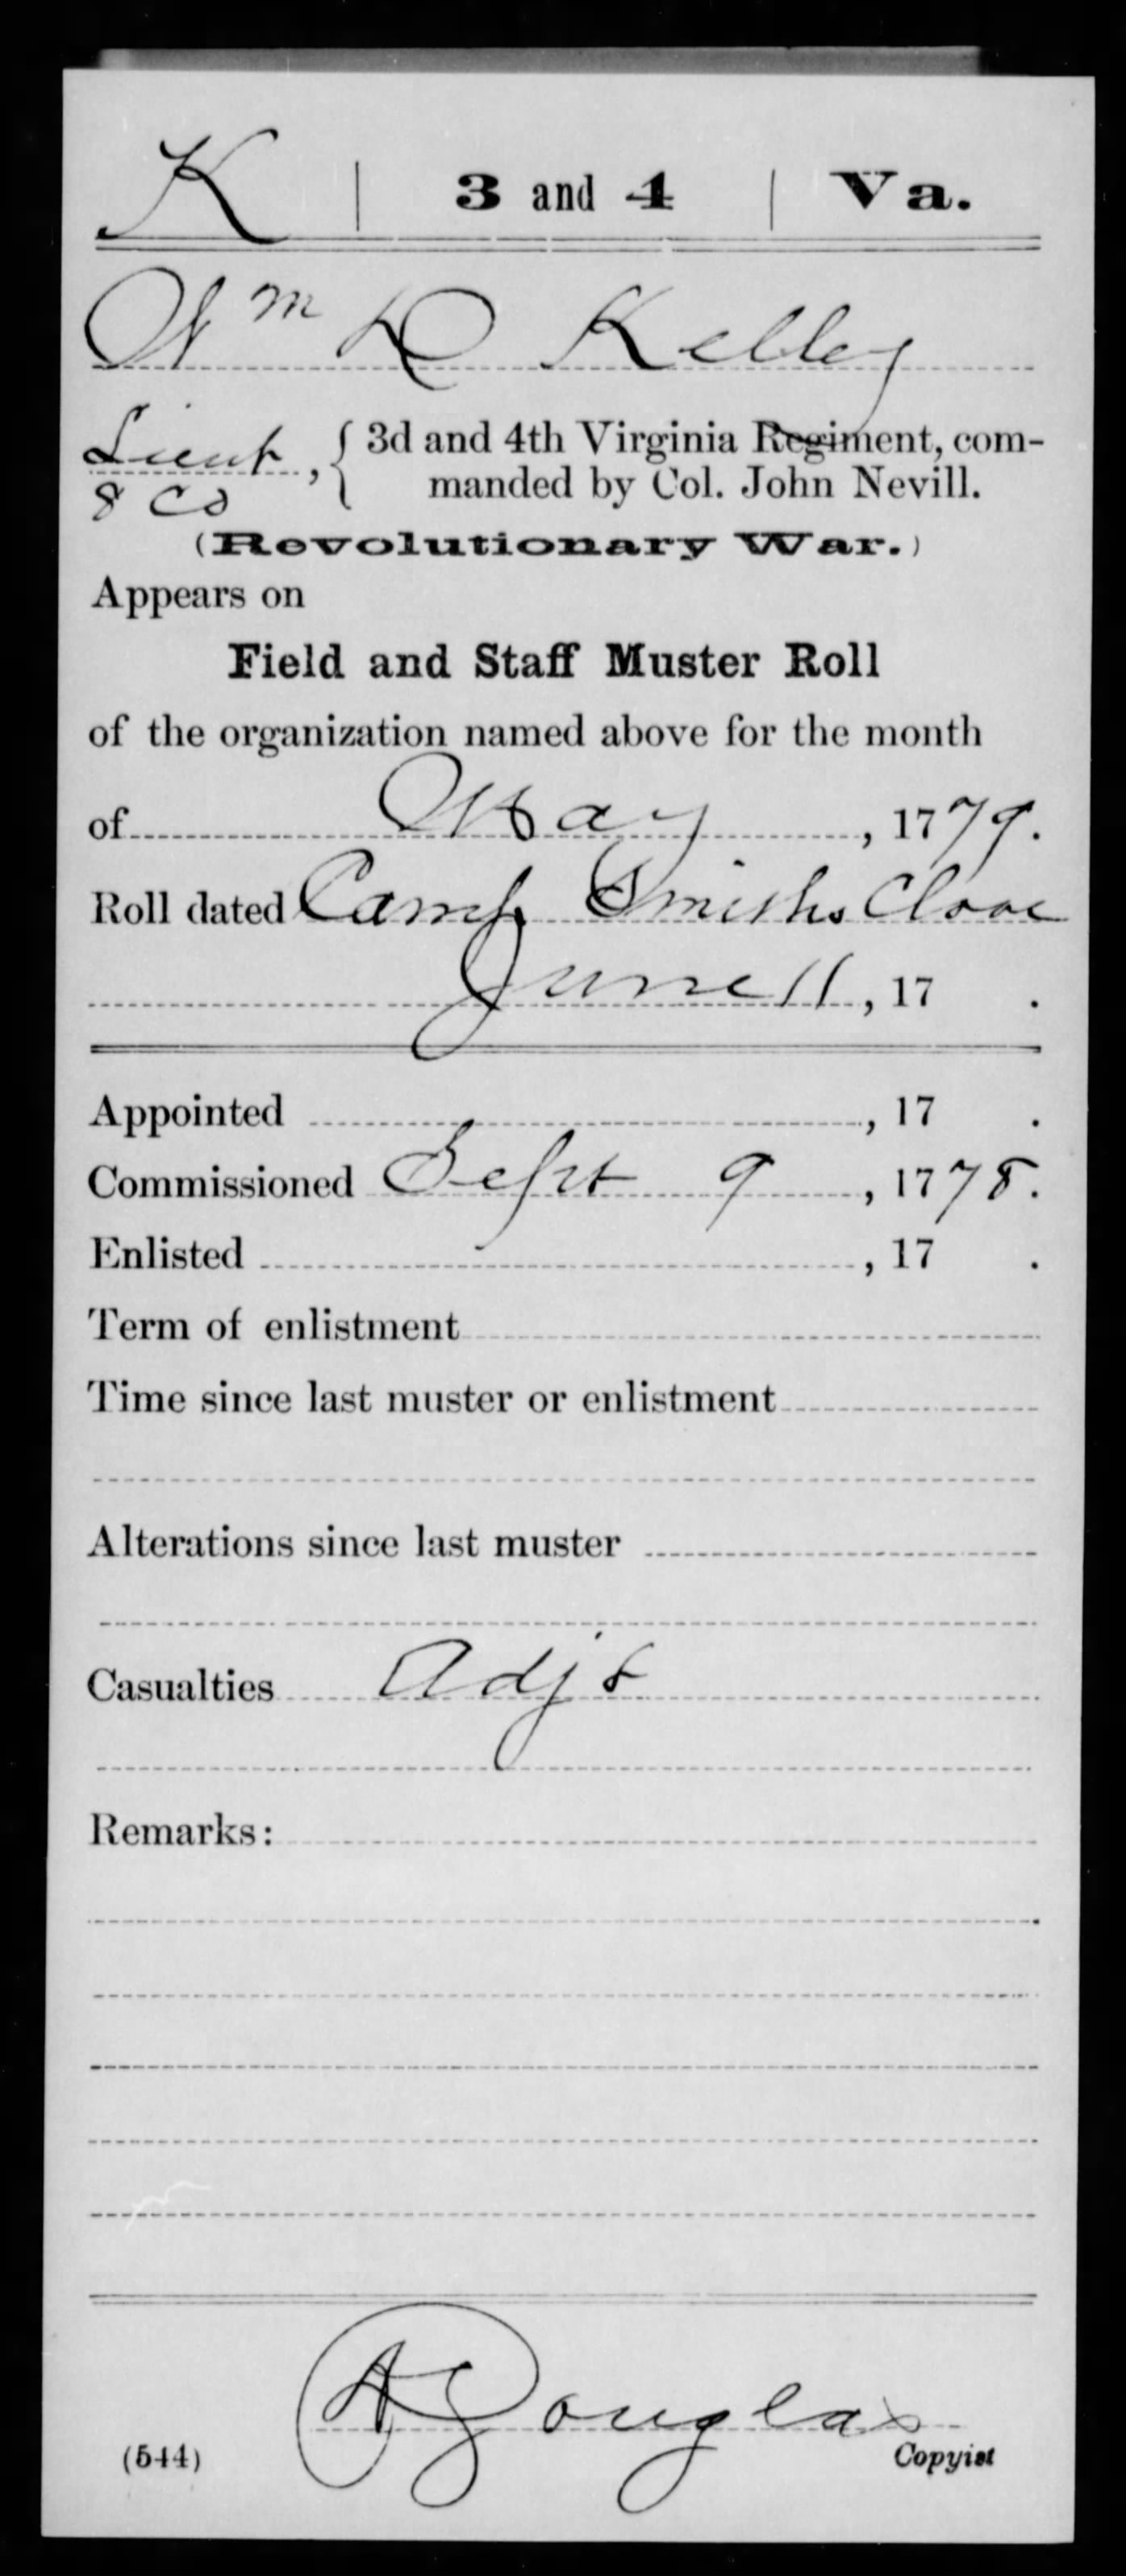 K | 3 and 4 | Va.
Wm D Kelley
Lieut, { 3d and 4th Virginia Regiment, com-
8 Co manded by Col. John Nevill.
(Revolutionary War.)
Appears on
Field and Staff Muster Roll
of the organization named above for the month
of May, 1779.
Roll dated Camp Smiths Clove
June 11, 17 .
Appointed , 17 .
Commissioned Sept 9, 1778.
Enlisted , 17 .
Term of enlistment
Time since last muster or enlistment
Alterations since last muster
Casualties Adjt
Remarks:
A Douglas
(544) Copyist